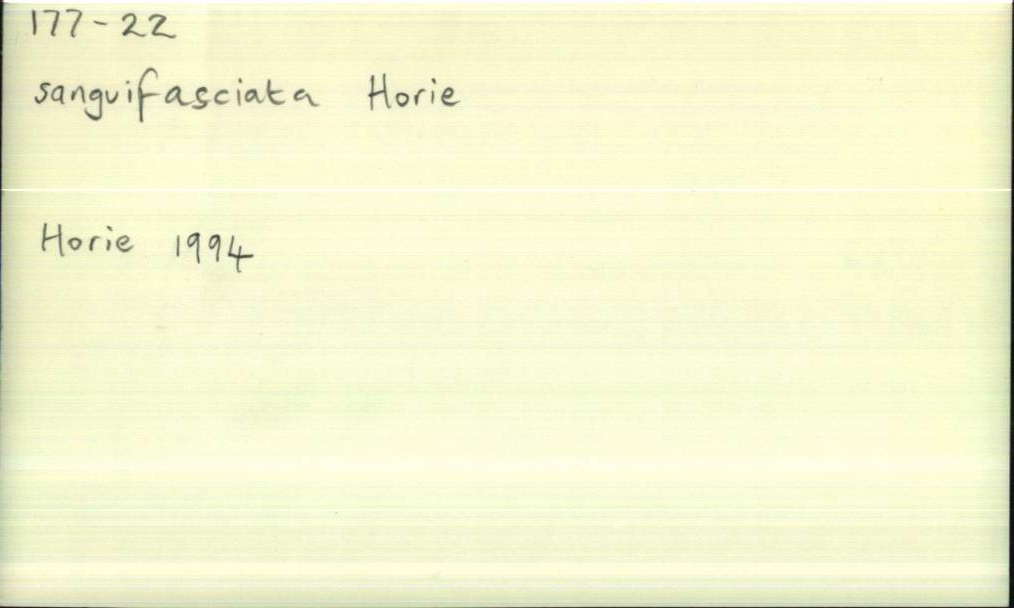 177-22
sanguifasciata Horie
Horie 1994